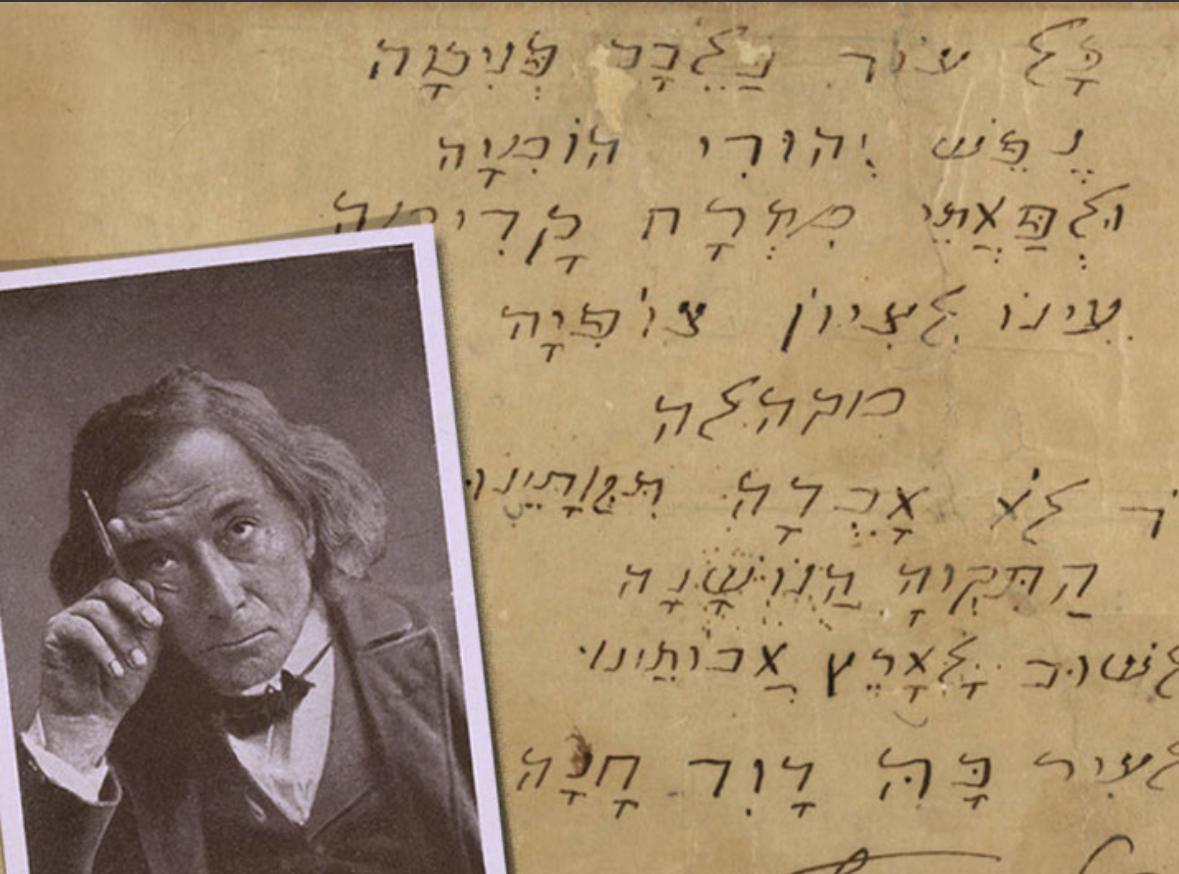 כָּל עוֹד בַּלֵבָב פְּנִימָה
נֶפֶשׁ יְהוּדִי הוֹמִיָה
וּלְפַאֲתֵי מִזְרָח קָדִימָה
עֵינוֹ לְצִיוֹן צוֹפִיָה
מקהלה
לֹא אָבְדָה תִּקְוָתֵינוּ
הַתִּקְוָה הַנוֹשָׁנָה
לשוּב לְאָרֶץ אֲבוֹתֵינוּ
לעִיר בָּהּ דָוִד חָנָה